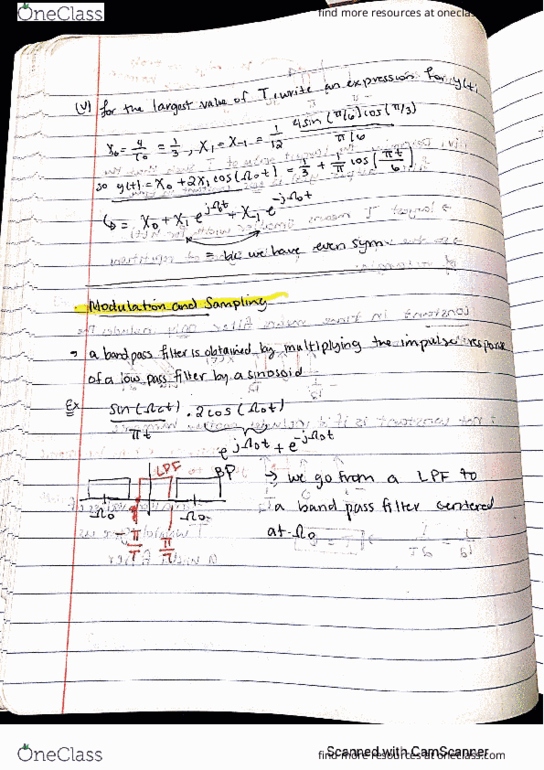 OneClass
find more resources at oneclass.com
(v) for the largest value of T, write an expression for y(t)
X₀ = 4/T₀ = 1/3, X₁ = X₋₁ = 1/12 4sin(π/6)cos(π/3) / π/6
so y(t) = X₀ + 2X₁ cos(Ω₀t) = 1/3 + 1/π cos(πt/6)
↳ = X₀ + X₁ e^jΩ₀t + X₋₁ e^-jΩ₀t
= bc we have even sym
Modulation and Sampling
→ a band pass filter is obtained by multiplying the impulse response
of a low pass filter by a sinosoid
Ex sin(Ωct) / πt . 2cos(Ω₀t)
e^jΩ₀t + e^-jΩ₀t
LPF BP
→ we go from a LPF to
-Ω₀ Ω₀ a band pass filter centered
-π/T π/T at Ω₀
Scanned with CamScanner
OneClass
find more resources at oneclass.com